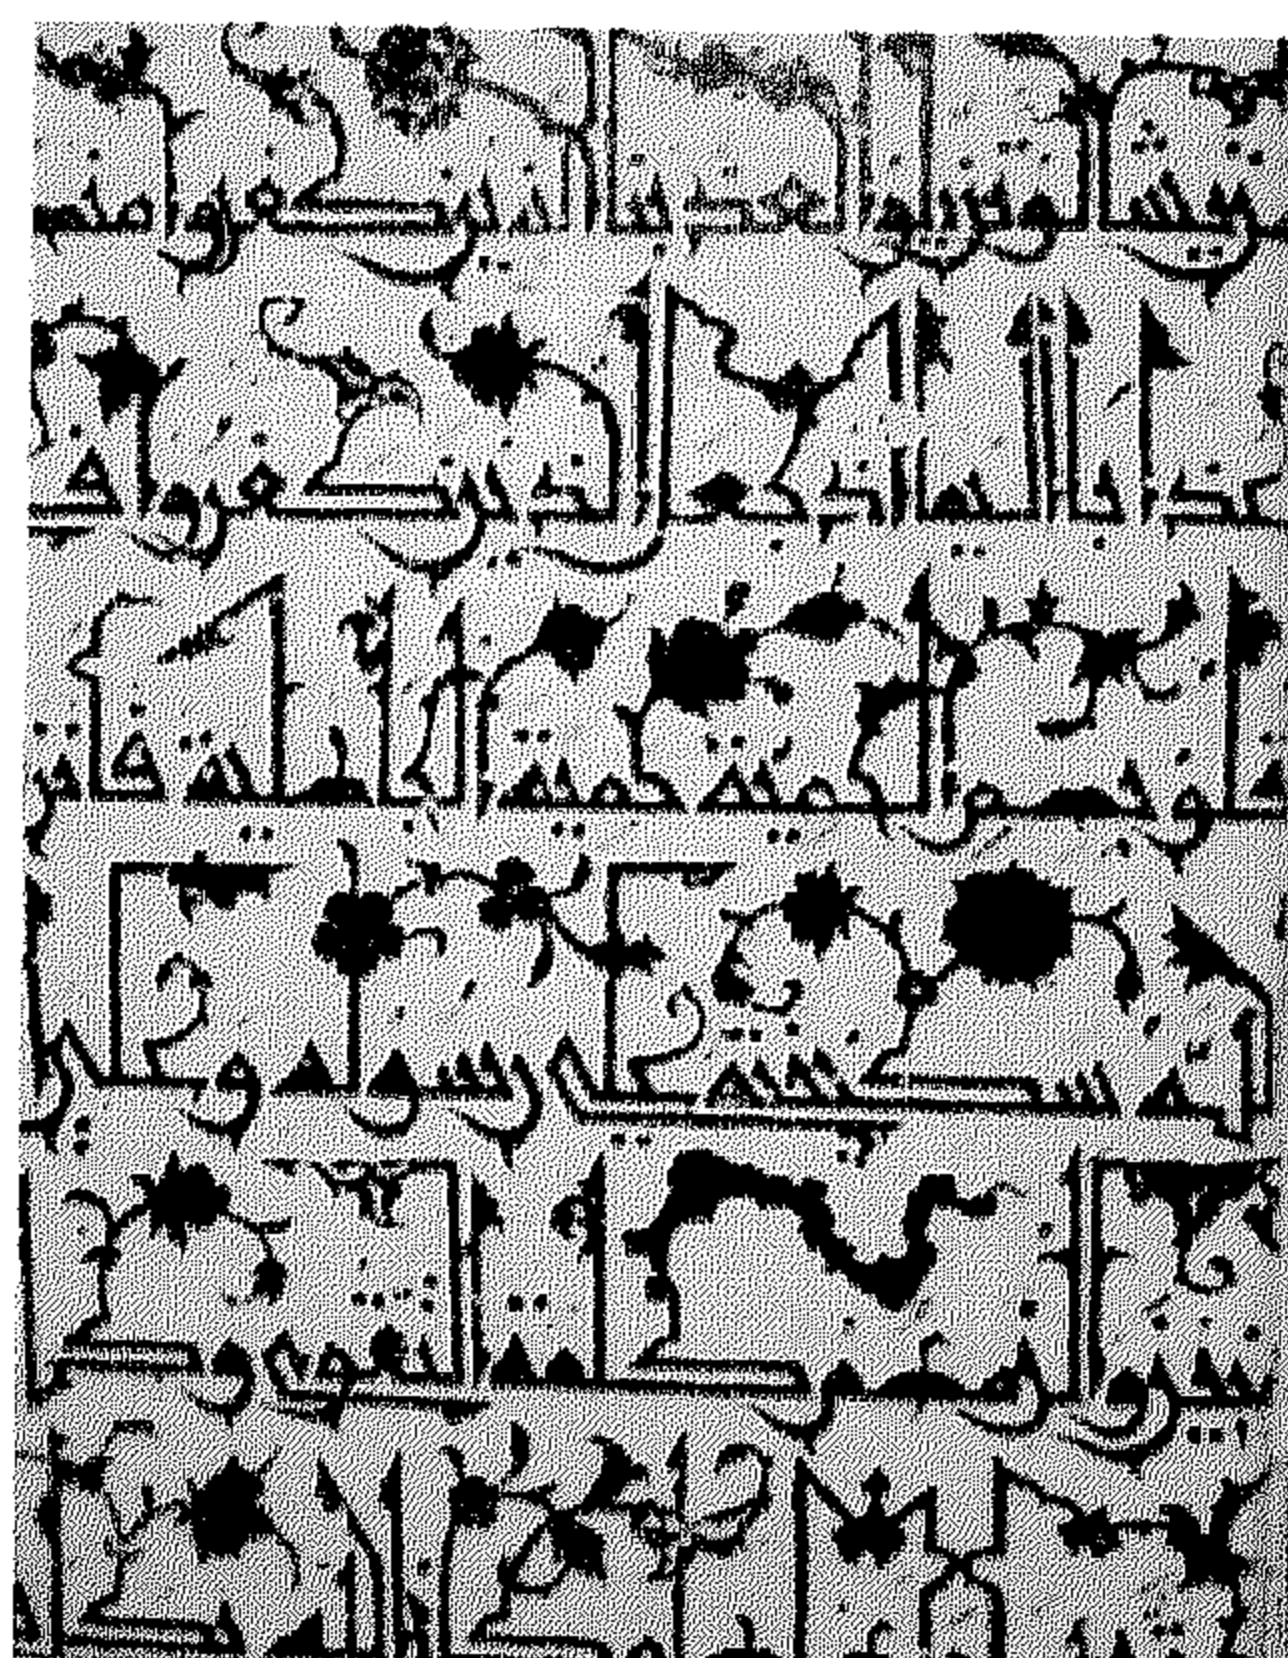 من يشا لو تزيلوا لعذبنا الذين كفروا منهم
عذابا اليما اذ جعل الذين كفروا في
قلوبهم الحمية حمية الجاهلية فانز
ل الله سكينته على رسوله وعلى ا
لمؤمنين والزمهم كلمة التقوى وكا